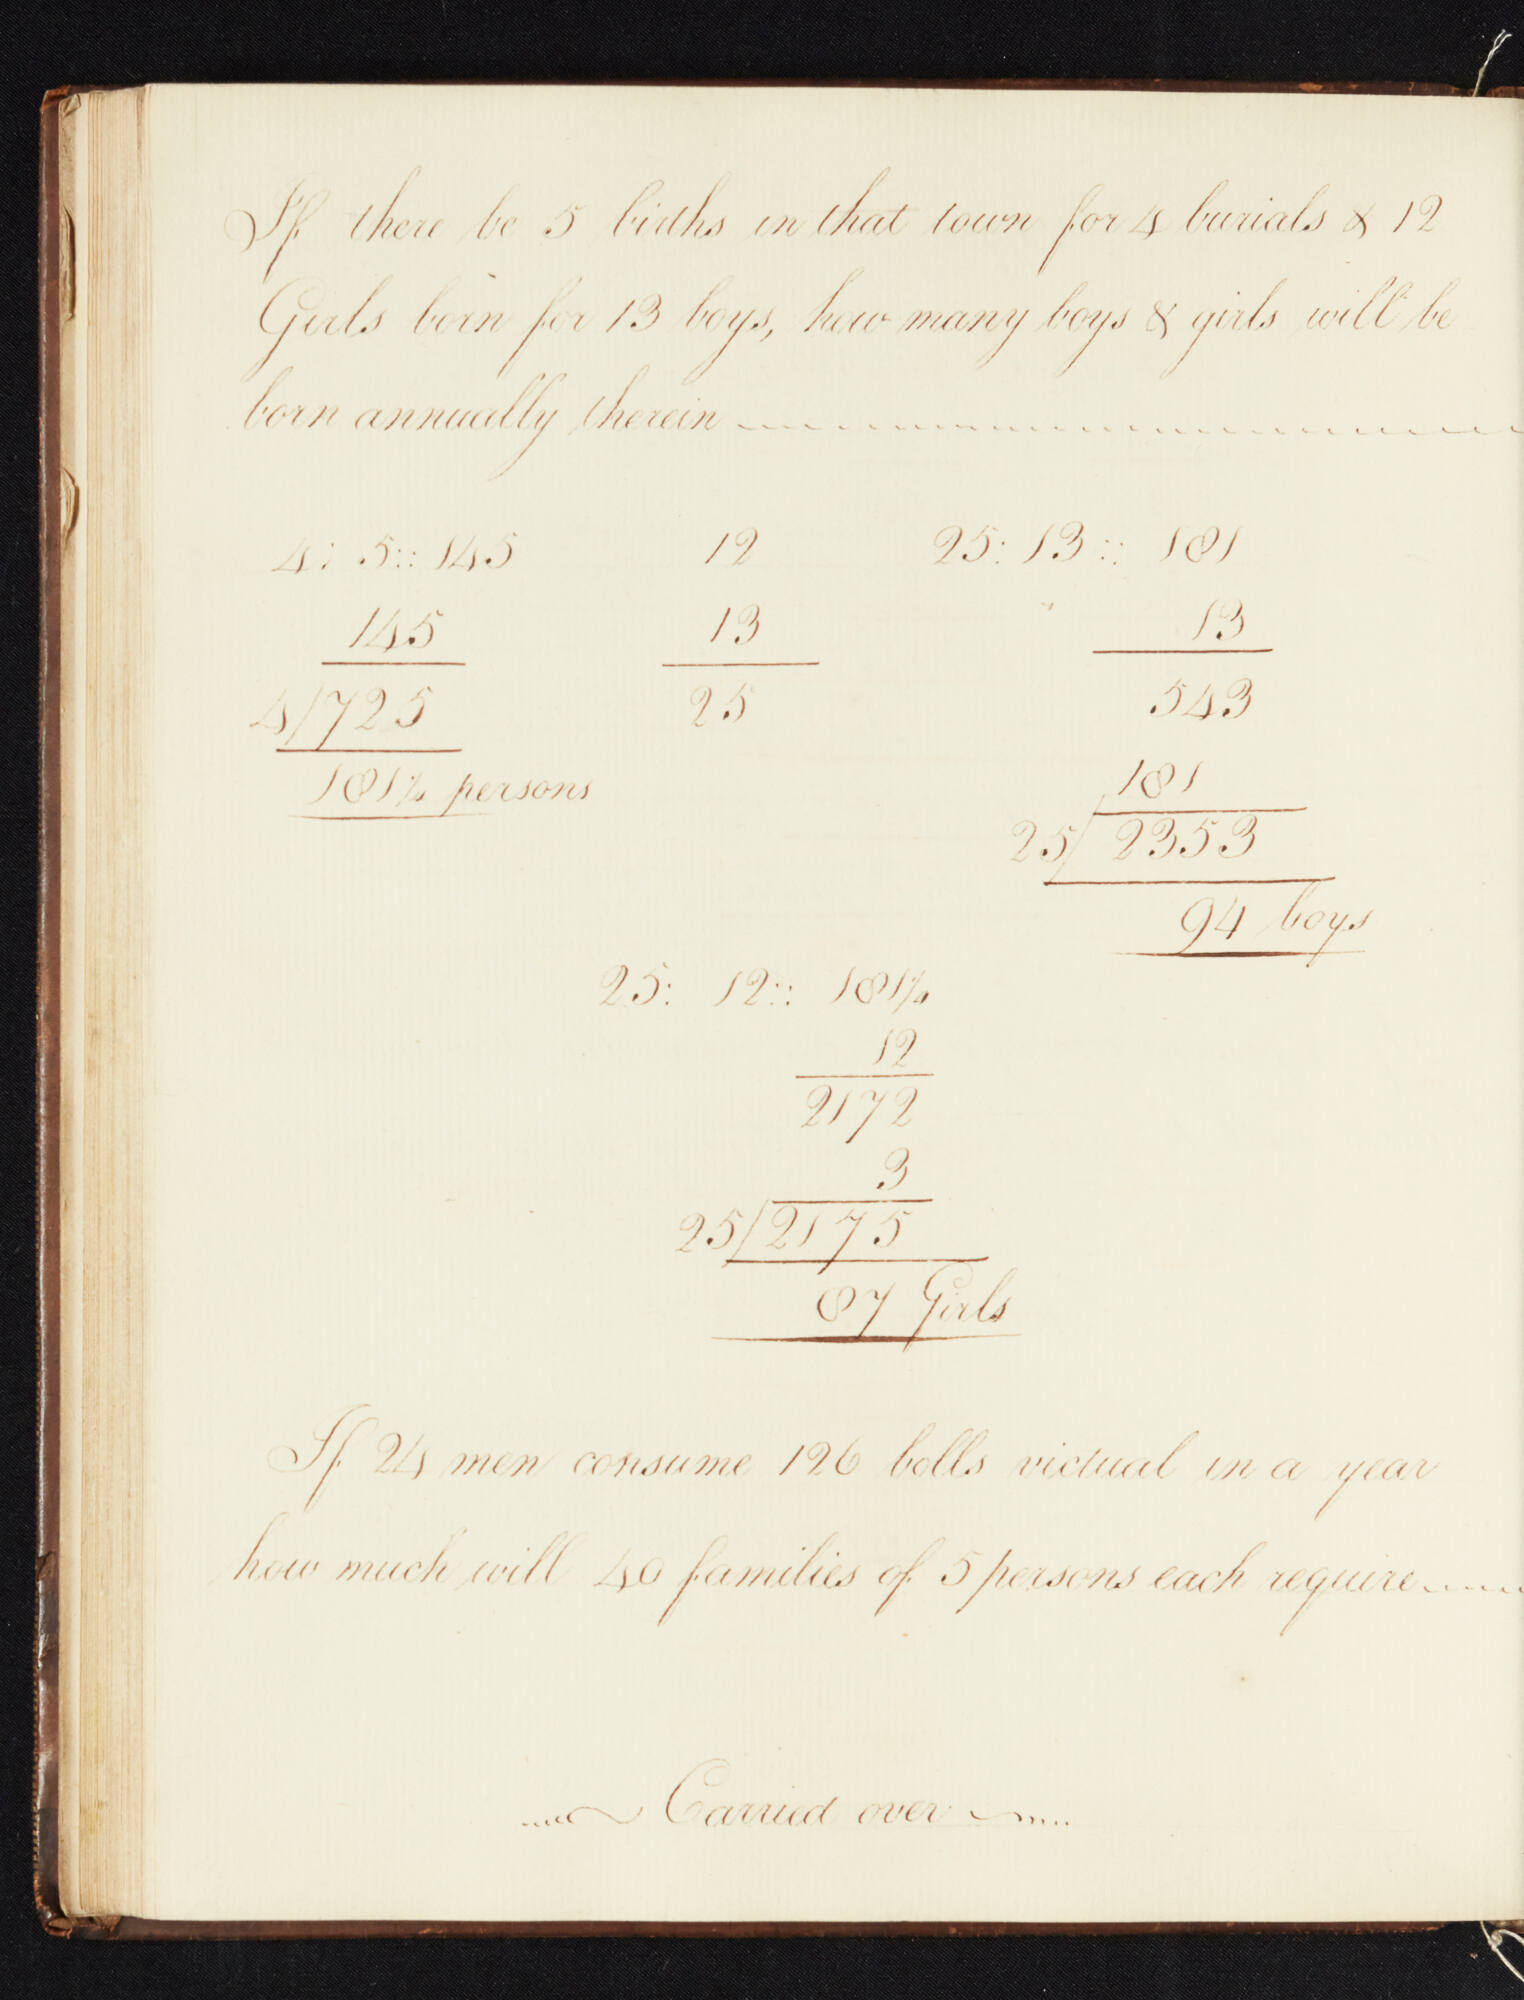 If there be 5 births in that town for 4 burials & 12
Girls born for 13 boys, how many boys & girls will be
born annually therein
4: 5:: 145
145
4/725
181¼ persons
12
13
25
25: 13 :: 181
13
543
181
25/2353
94 boys
25: 12:: 181¼
12
2172
3
25/2175
87 Girls
If 24 men consume 126 bolls victual in a year
how much will 40 families of 5 persons each require
Carried over